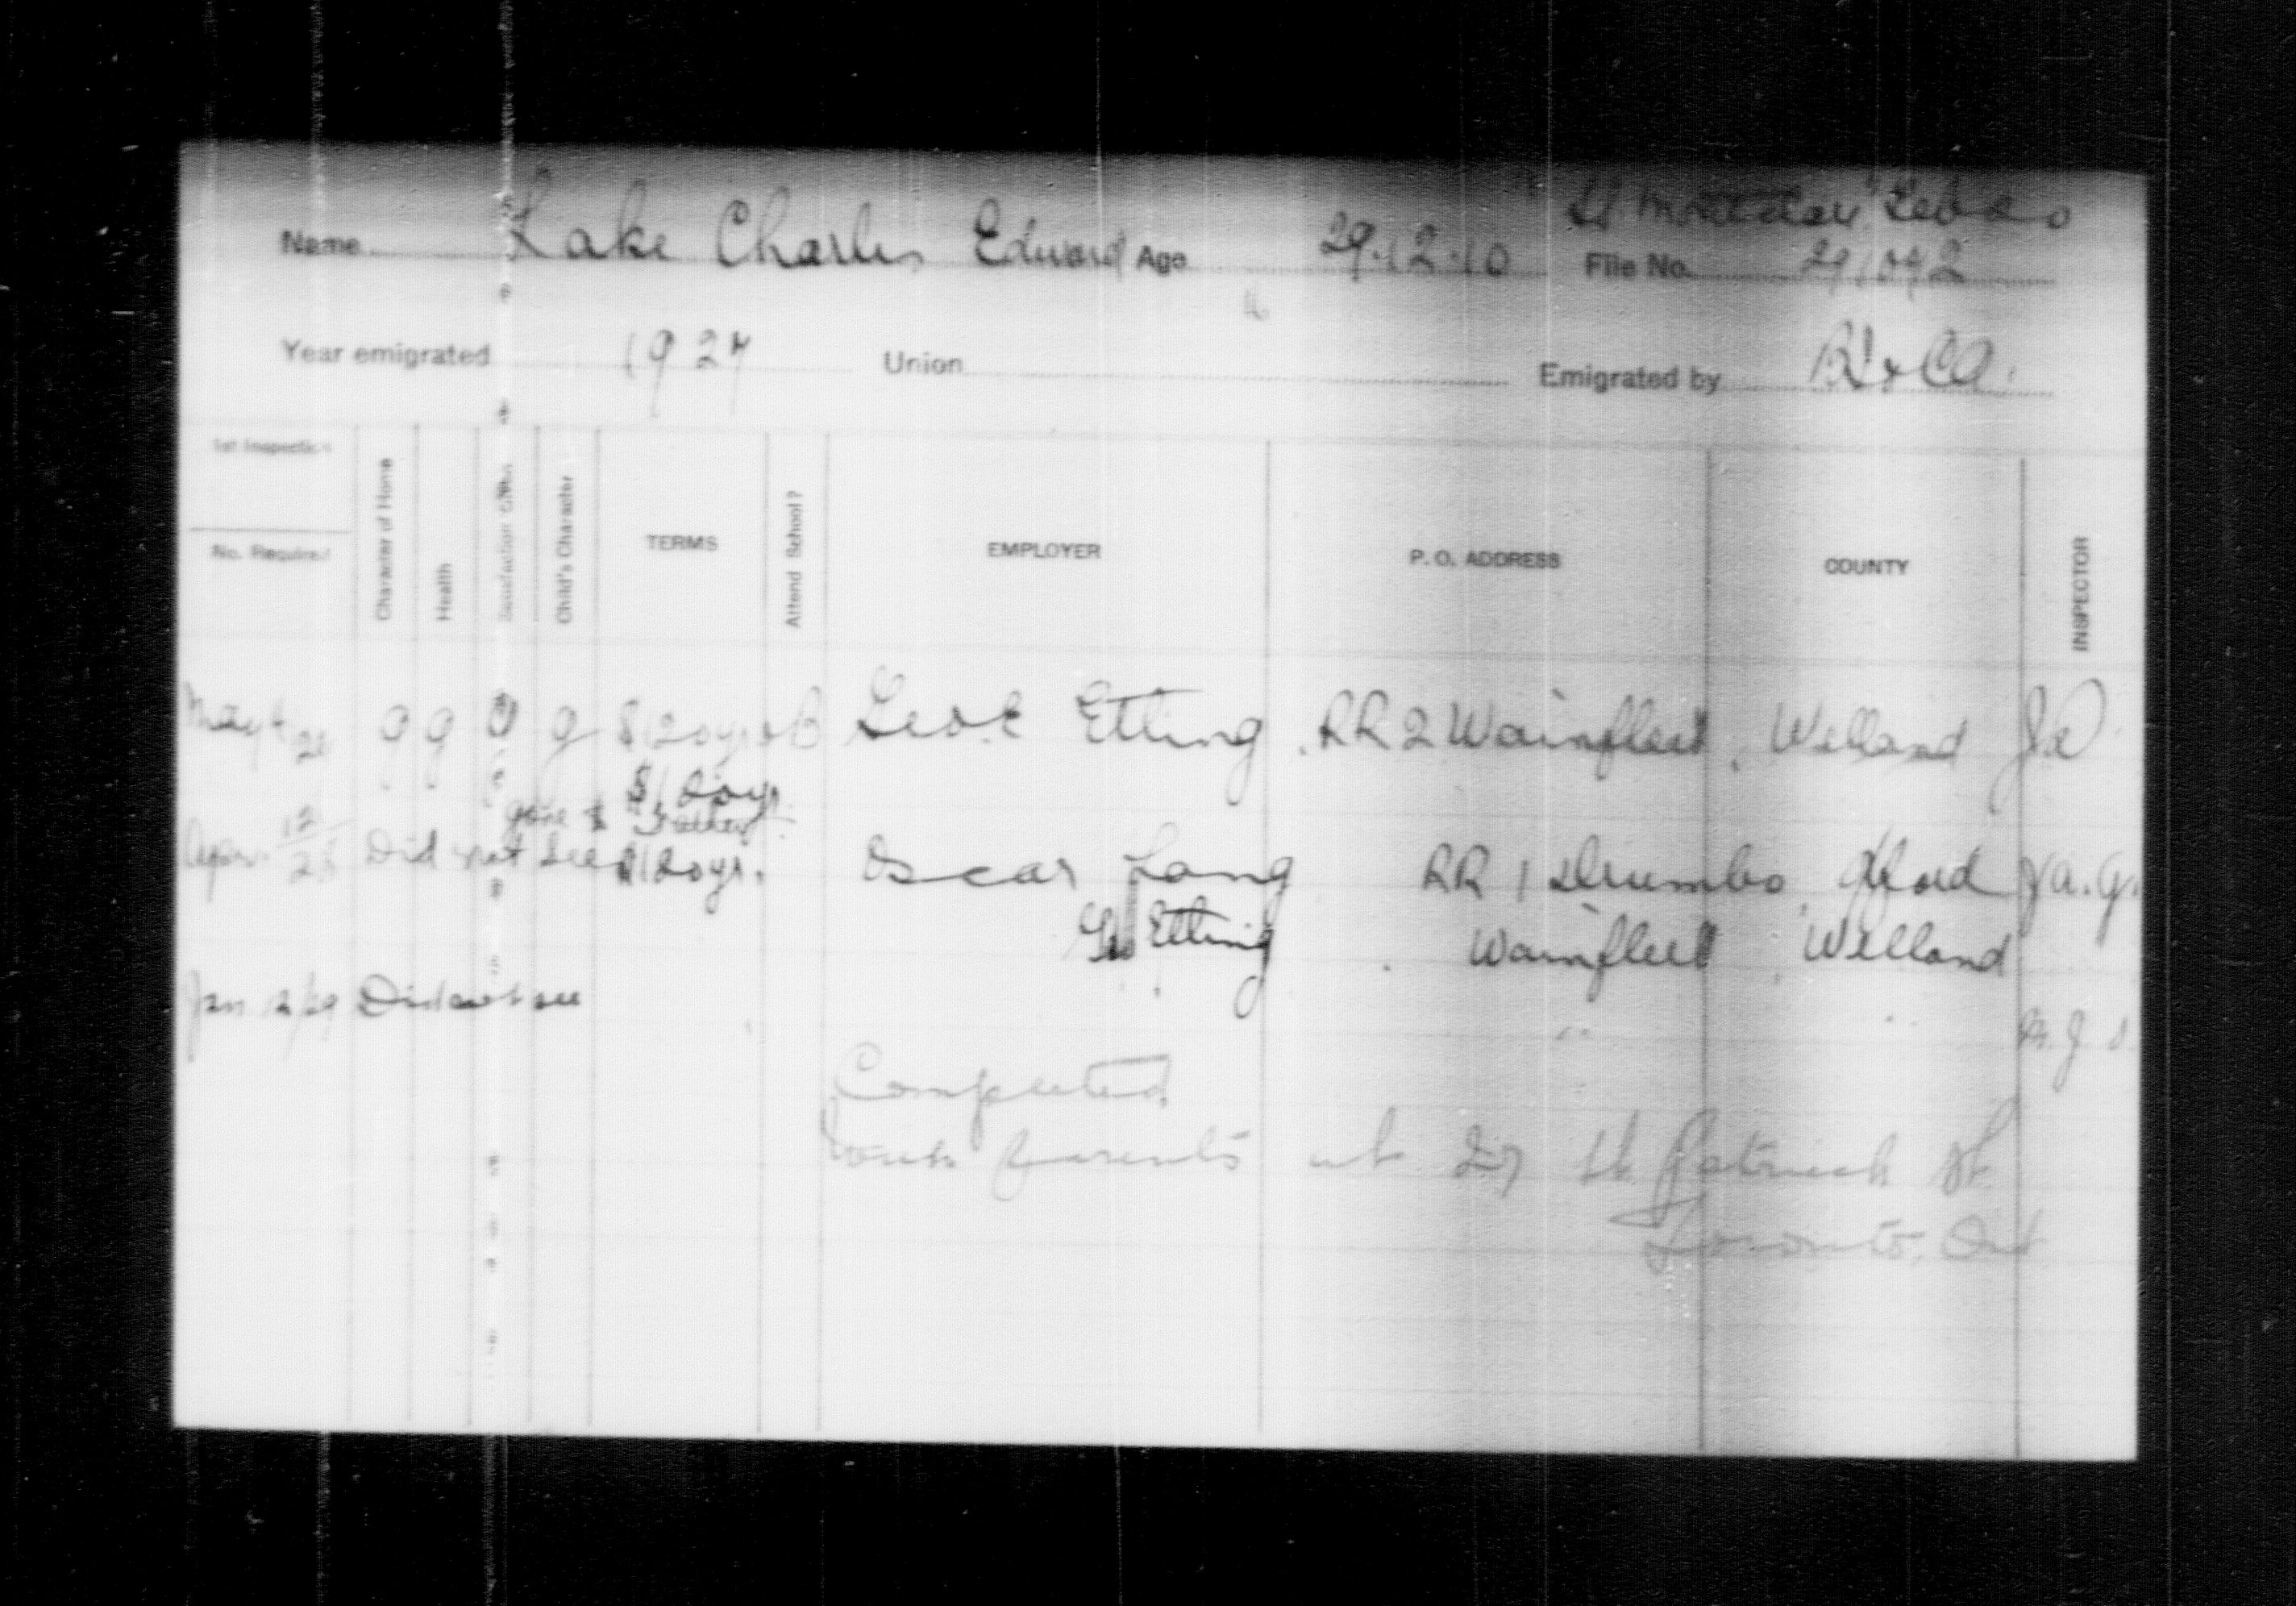 Name Lake Charles Edward Age 29.12.10 File No.
16
Year emigrated 1927 Union Emigrated by
1st Inspection
No. Required
Character of Home
Health
Child's Character
TERMS
Attend School?
EMPLOYER
P. O. ADDRESS
COUNTY
INSPECTOR
May 4 g g g g $120 yr Geo. E Etling RR 2 Wainfleet Welland
$120 yr.
gone to Father
Apr. 12/28 Did not see $120 yr. Oscar Lang RR 1 Drumbo Oxford J.A.G.
Geo Etling Wainfleet Welland
Jan 12/29 Did not see " "
Completed
With parents at 27 St. Patrick St.
Toronto. Ont